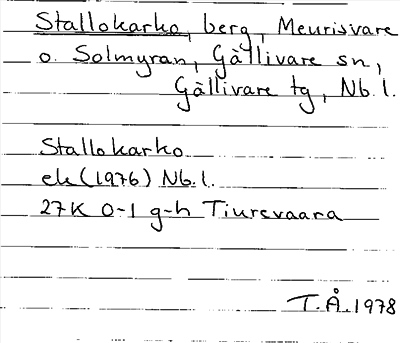 Stallokarko, berg, Meurisvare
o. Solmyran, Gällivare sn,
Gällivare tg, Nb. l.
Stallokarko
ek (1976) Nb. l.
27K 0-1 g-h Tiursvaara
T.Å. 1978